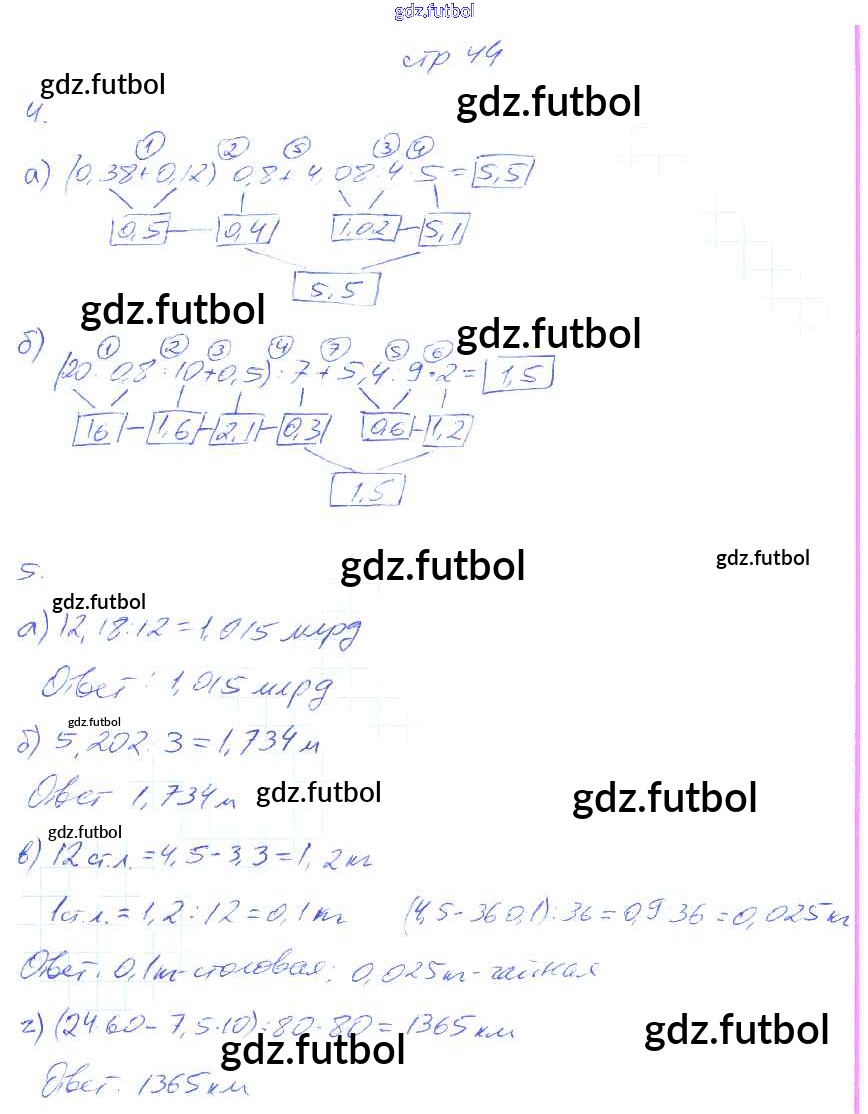 gdz.futbol
стр 44
gdz.futbol
gdz.futbol
4.
1 2 5 3 4
а) (0,38+0,12) 0,8+4,08:4·5=5,5
0,5 0,4 1,02 5,1
5,5
gdz.futbol
gdz.futbol
1 2 3 4 7 5 6
б) (20·0,8:10+0,5):7+5,4:9·2=1,5
16 1,6 2,1 0,3 0,6 1,2
1,5
gdz.futbol
gdz.futbol
5.
gdz.futbol
а) 12,18:12=1,015 млрд
Ответ: 1,015 млрд
gdz.futbol
б) 5,202:3=1,734 м
Ответ 1,734 м
gdz.futbol
gdz.futbol
gdz.futbol
в) 12 ст.л.=4,5-3,3=1,2 кг
1 ст.л.=1,2:12=0,1 кг (4,5-36 0,1):36=0,9 36=0,025 кг
Ответ: 0,1 кг-столовая; 0,025 кг-чайная
г) (24·60-7,5·10):80·80=1365 км
gdz.futbol
gdz.futbol
Ответ: 1365 км